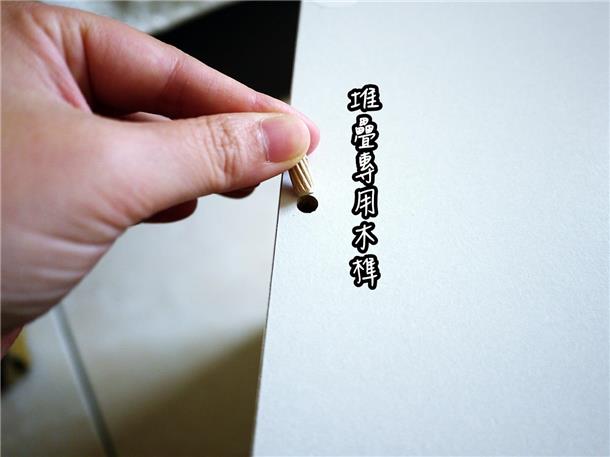 堆疊專用木榫